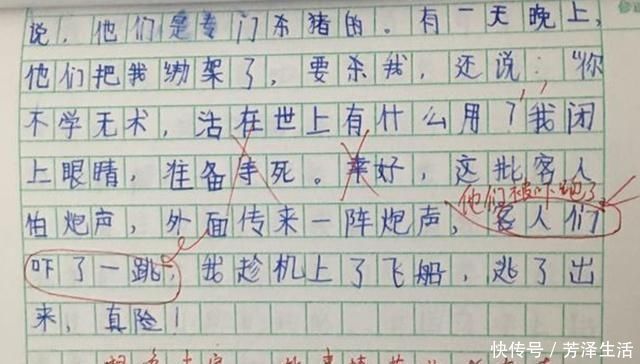 说，他们是专门杀猪的。有一天晚上，
他们把我绑架了，要杀我，还说："你
不学无术，活在世上有什么用？"我闭
上眼睛，往备死。好，这批客人
他们被吓跑了
怕炮声，外面传来一阵炮声，客人们
吓了一跳，我趁机上了飞船，逃了出
来，真险！
快传号／芳泽生活